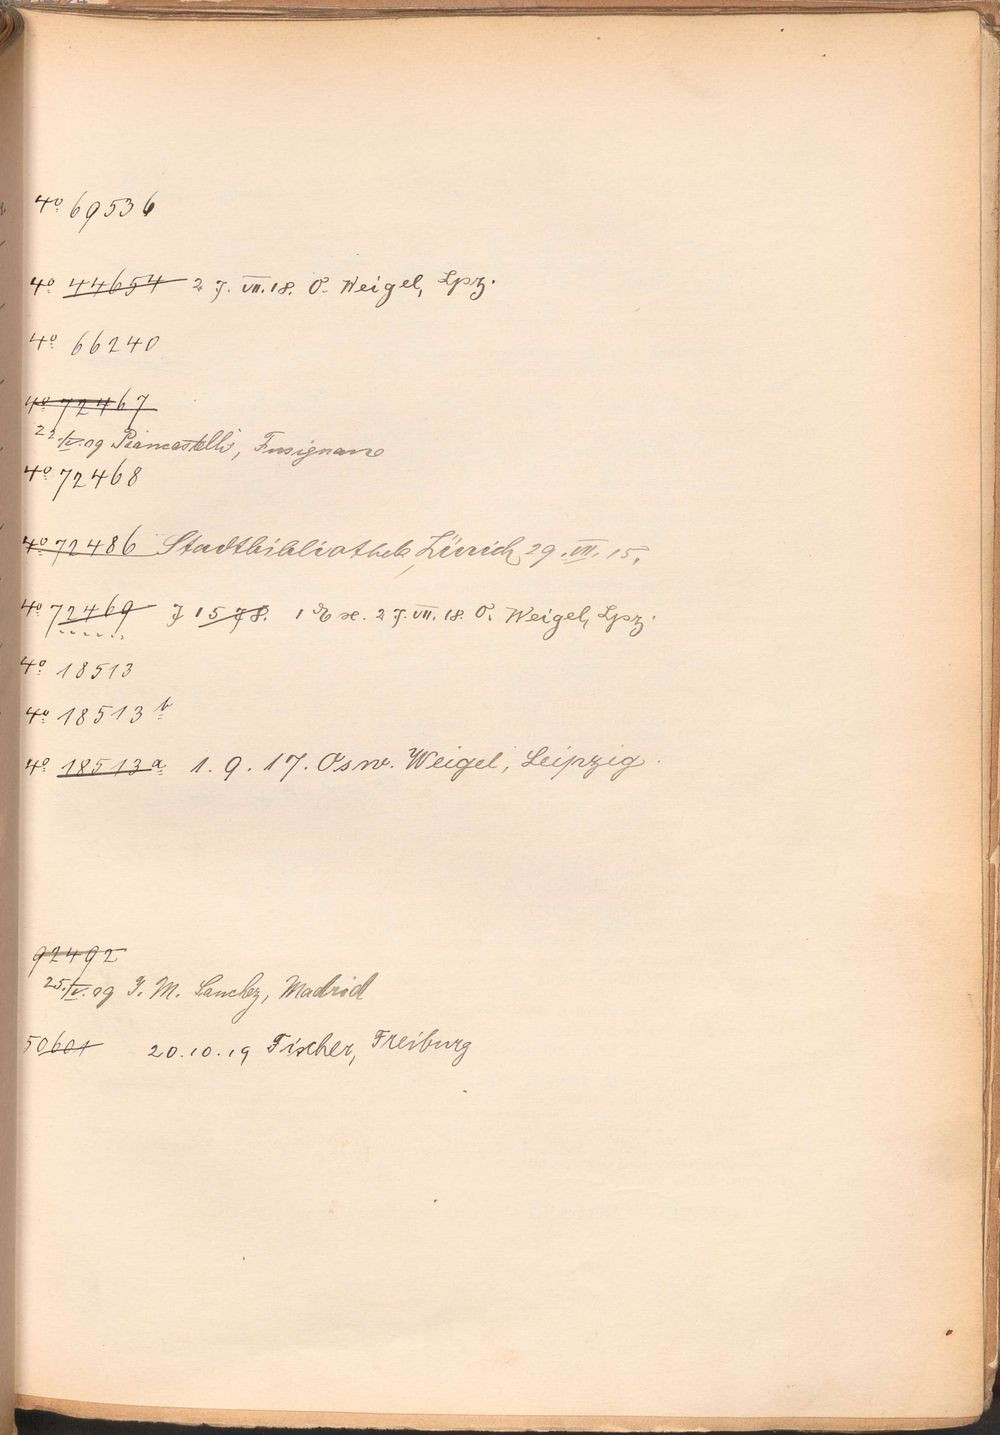 4º 69536
4º 44654 27. VII. 18. O. Weigel, Lpz.
4º 66240
4º 72467
22. IV. 09 Piancastelli, Fusignano
4º 72468
4º 72486 Stadtbibliothek, Zürich 29. VII. 15.
4º 72469 J 1578. 1 Ex. 27. VII. 18. O. Weigel, Lpz.
4º 18513
4º 18513 b
4º 18513 a 1. 9. 17. Osw. Weigel, Leipzig.
92492
25. IV. 09 J. M. Sanchez, Madrid
50601 20. 10. 19 Fischer, Freiburg